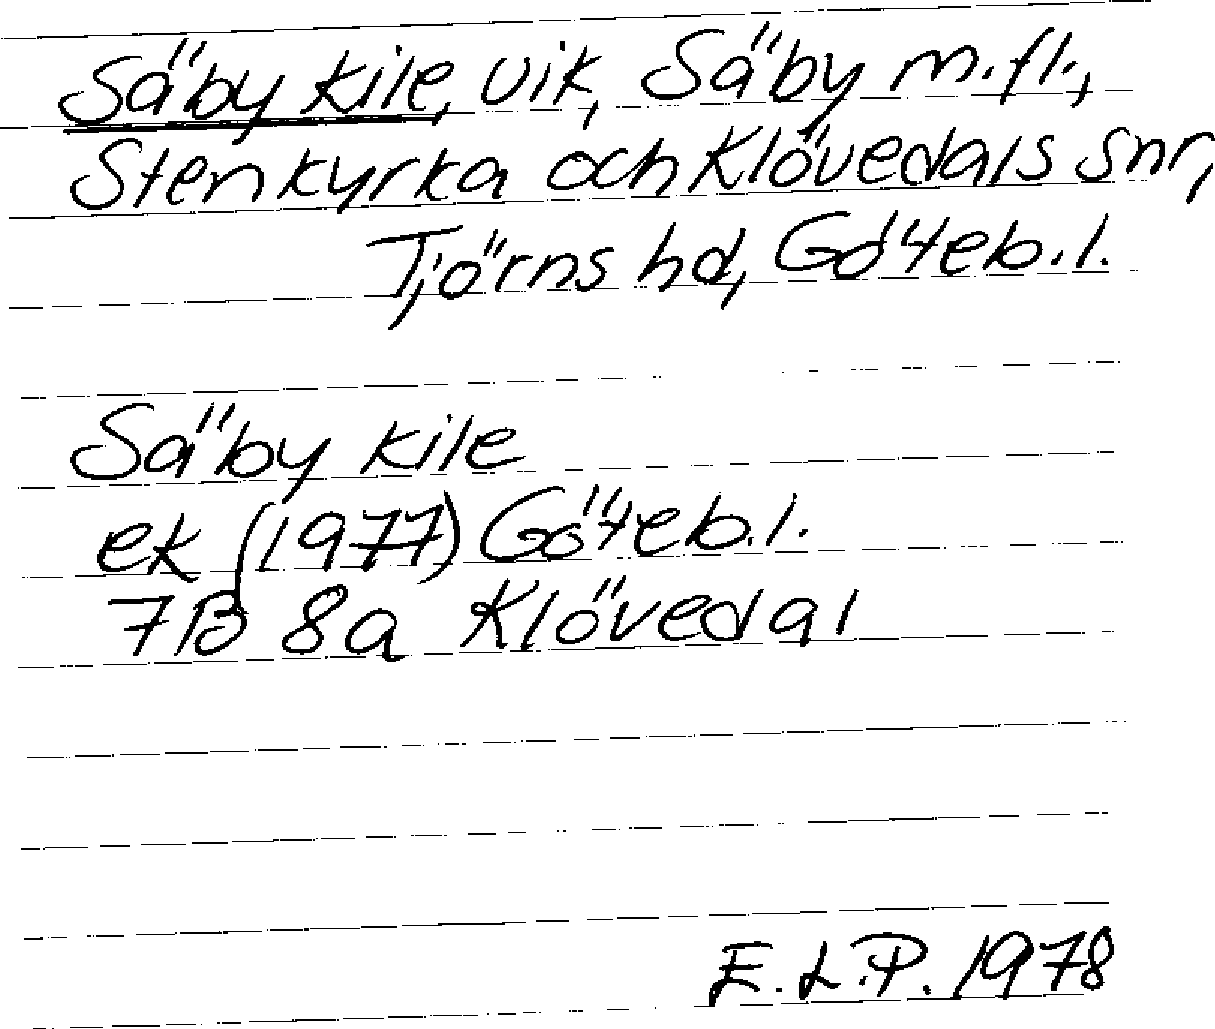 Säby kile, vik, Säby m.fl.,
Stenkyrka och Klövedals snr,
Tjörns hd, Göteb.l.
Säby kile
ek (1977) Göteb.l.
7B 8a Klövedal
E.L.P. 1978